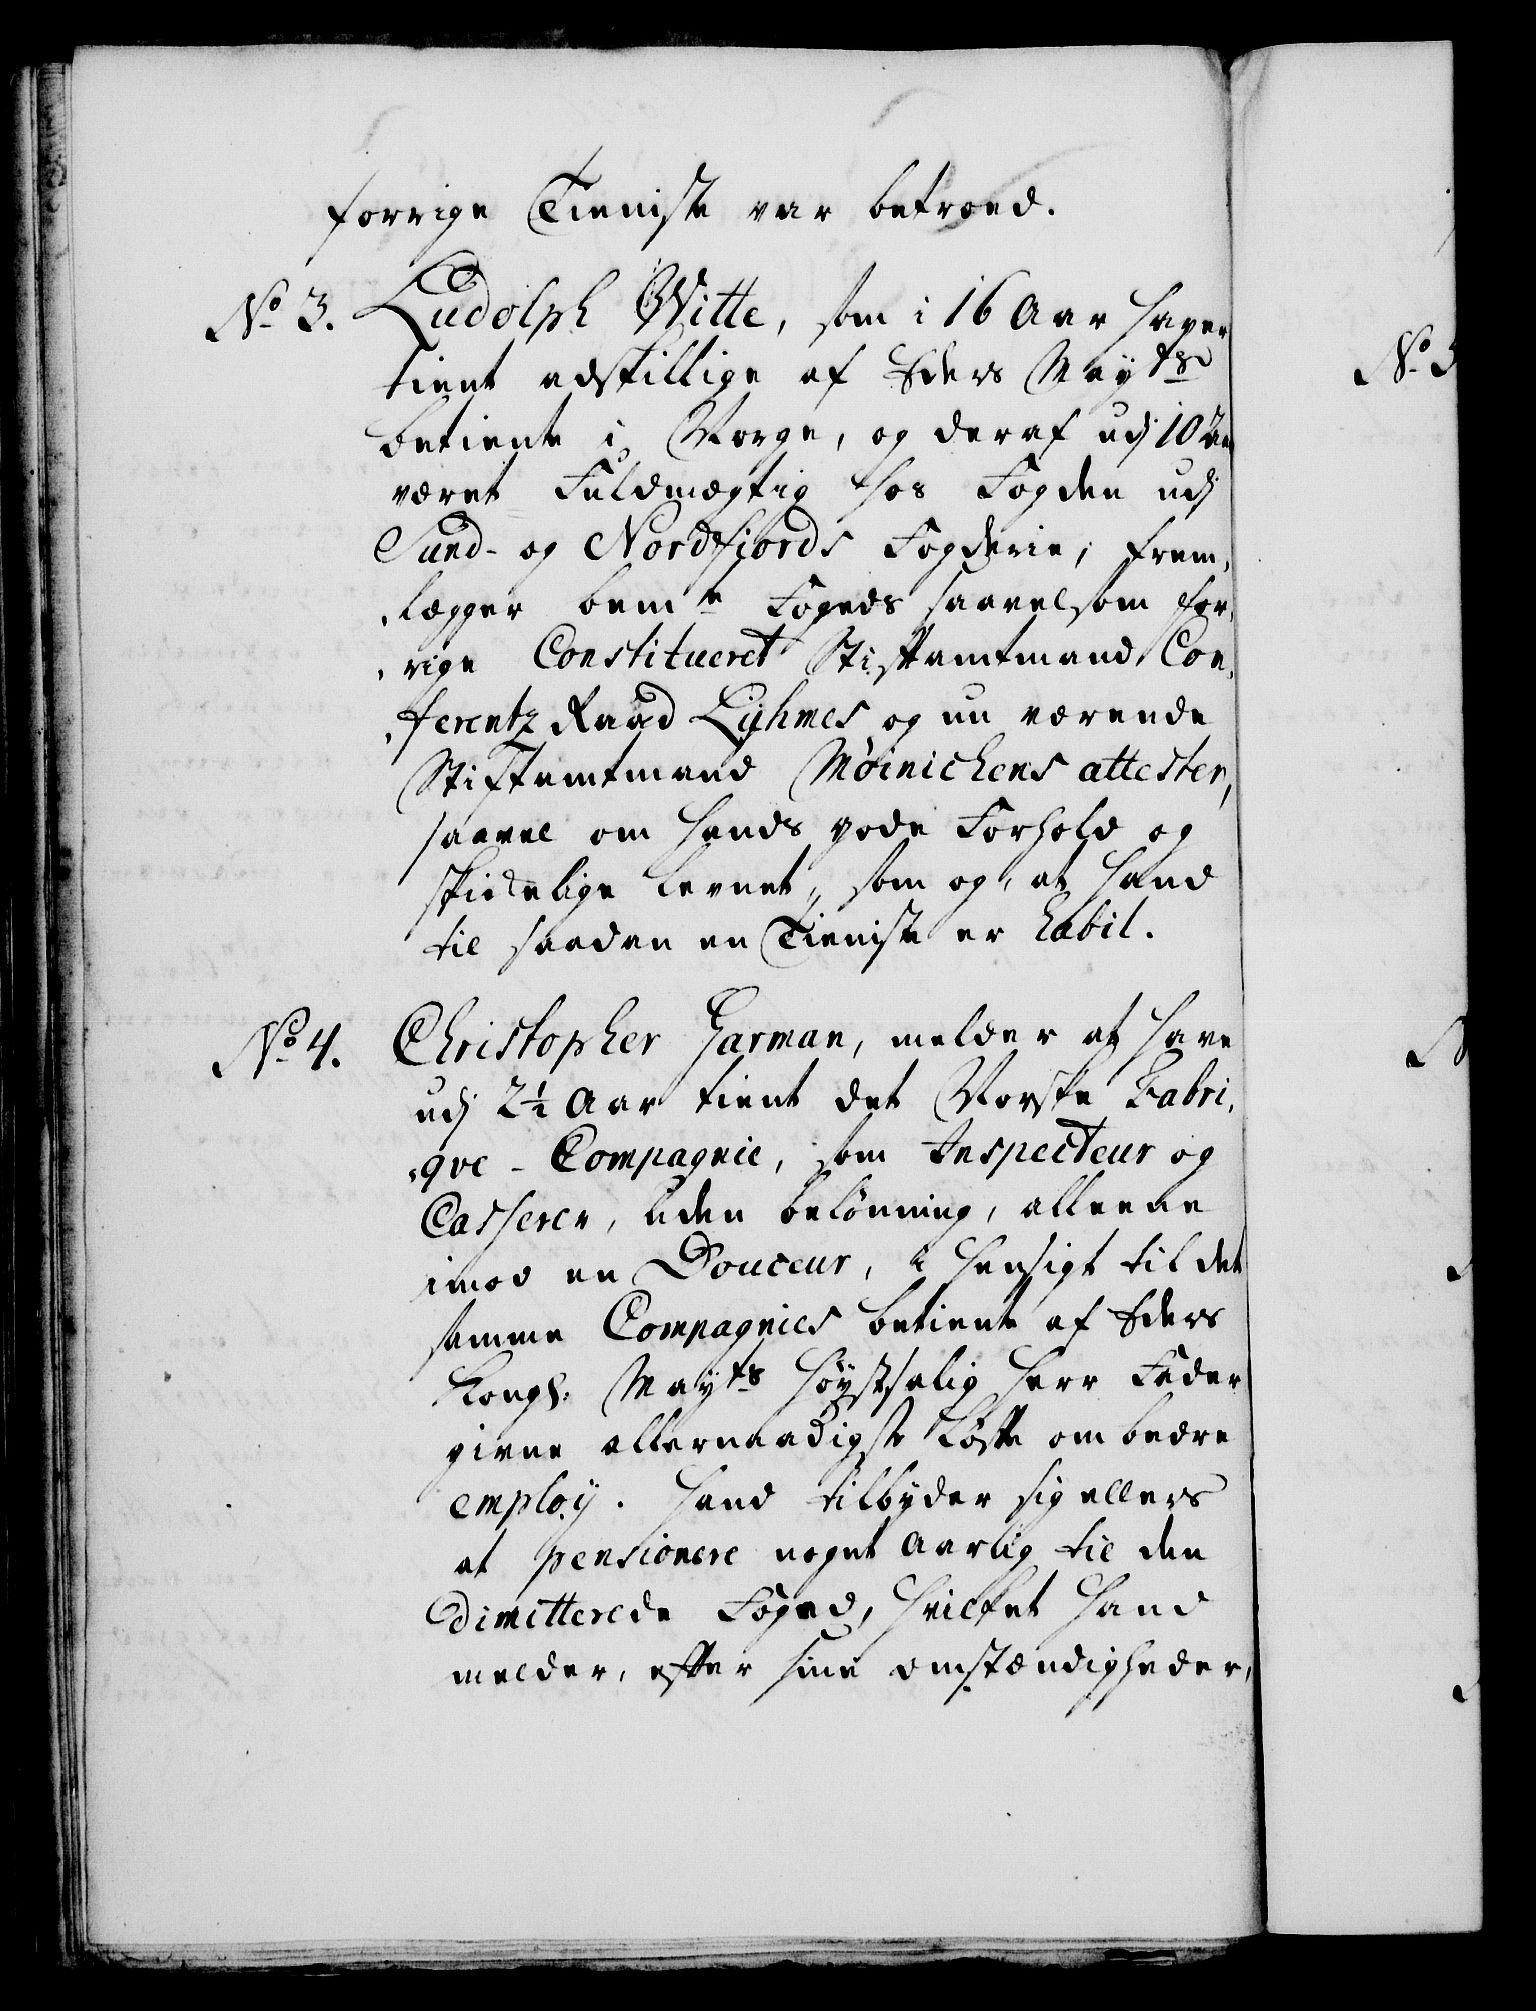 forrige Tieniste var betroed.
No 3. Ludolph Witte, som i 16 Aar haver
tient adskillige af Eders Mayts
betiente i Norge, og deraf udj 10 Aar
været Fuldmægtig hos Fogden udj
Sund- og Nordfjords Fogderie, frem-
lægger bemte Fogeds saavelsom for-
rige Constitueret Stiftamtmand Con-
ferentz Raad Lyhmes og nu værende
Stiftamtmand Møinichens attester,
saavel om hands gode Forhold og
skickelige levnet, som og, at hand
til saadan en Tieniste er habil.
No 4. Christopher Garman, melder at have
udj 2½ Aar tient det Norske Fabri-
qve-Compagnie, som Inspecteur og
Casserer, uden belönning, alleene
imod en Douceur, i hensigt til det
samme Compagnies betiente af Eders
Kongl. Mayts höystsalig Herr Fader
givne allernaadigste Löfte om bedre
employ. Hand tilbyder sig ellers
at pensionere noget Aarlig til den
dimitterede Foged, hvilket hand
melder, efter sine omstændigheder,
No 5